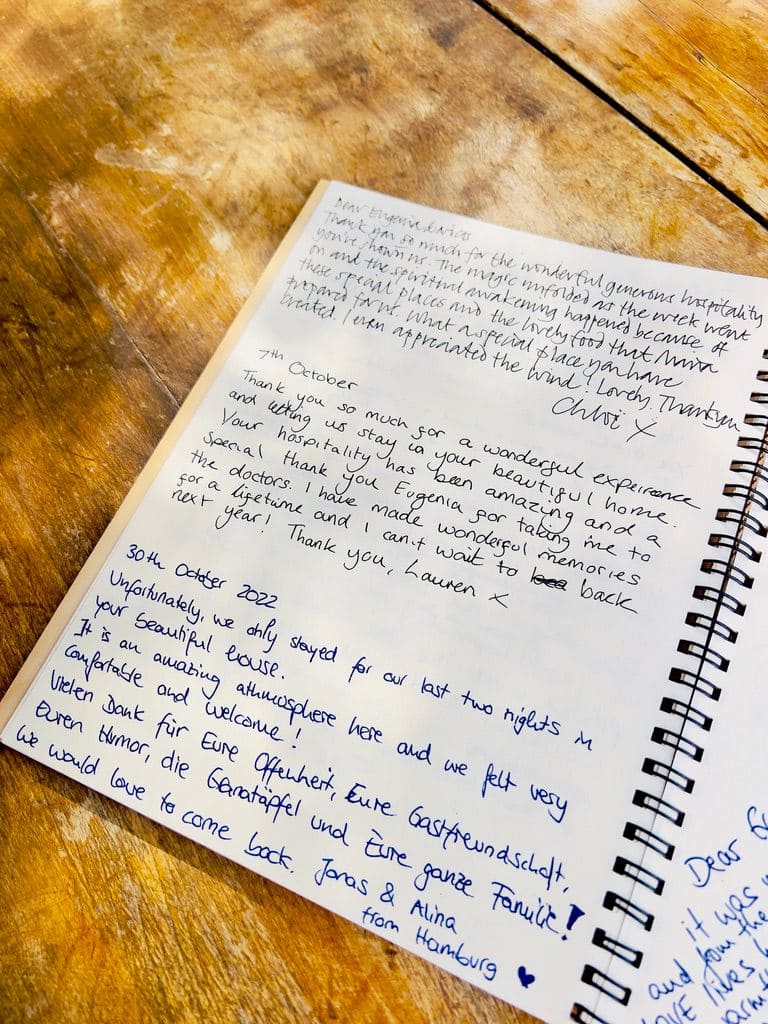 Dear Eugenia
Thank you so much for the wonderful generous hospitality
you've shown us. The magic unfolded as the week went
on and the spiritual awakening happened because of
these special places and the lovely food that
prepared for us. What a special place you have
created. I even appreciated the wind! Lovely. Thankyou
X
7th October
Thank you so much for a wonderful expeirence
and letting us stay in your beautiful home.
Your hospitality has been amazing and a
special thank you Eugenia for taking me to
the doctors. I have made wonderful memories
for a lifetime and I can't wait to back
next year! Thank you, Lauren X
30th October 2022
Unfortunately, we only stayed for our last two nights in
your beautiful house.
It is an amazing athmosphere here and we felt very
comfortable and welcome!
Vielen Dank für Eure Offenheit, Eure Gastfreundschaft,
Euren Humor, die Granatäpfel und Eure ganze Familie!
We would love to come back. Jonas & Alina
from Hamburg ♥
Dear
it was
and from the
LOVE lives